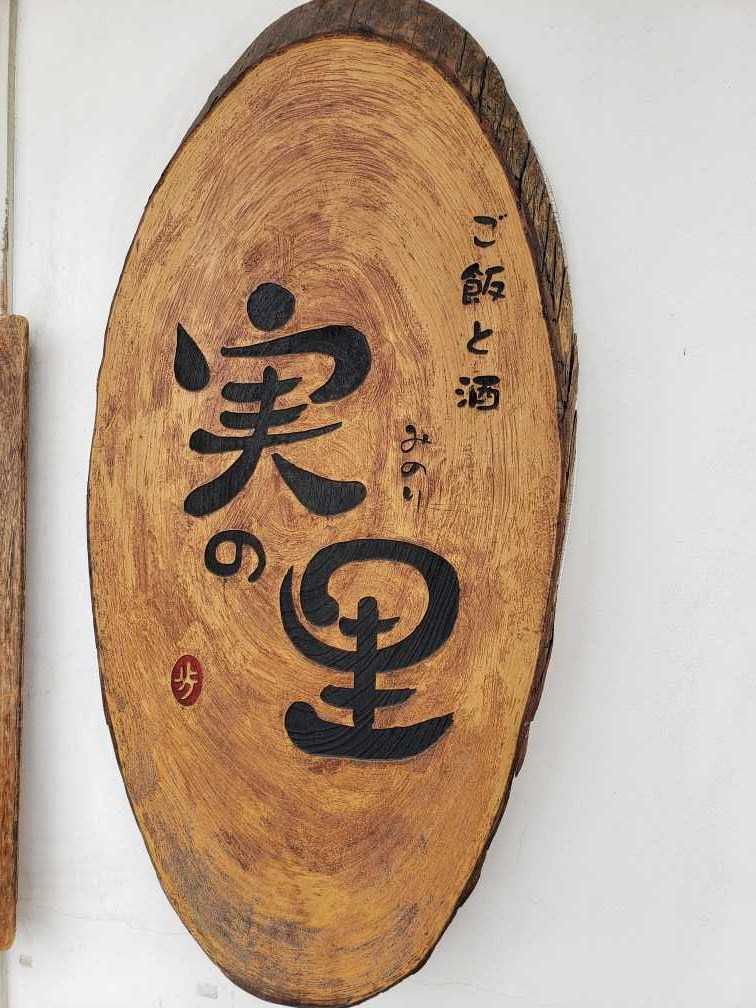 ご飯と酒
みのり
実の里
歩